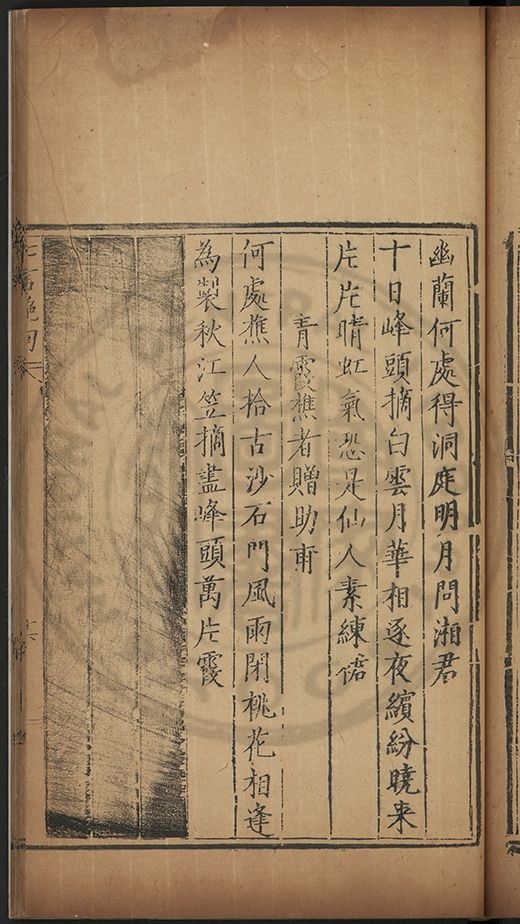 幽蘭何處得洞庭明月問湘君
十日峰頭摘白雲月華相逐夜繽紛曉来
片片晴虹氣恐是仙人素練裙
青霞樵者贈助甫
何處樵人拾古沙石門風雨閉桃花相逢
為製秋江笠摘盡峰頭萬片霞
七言絶句